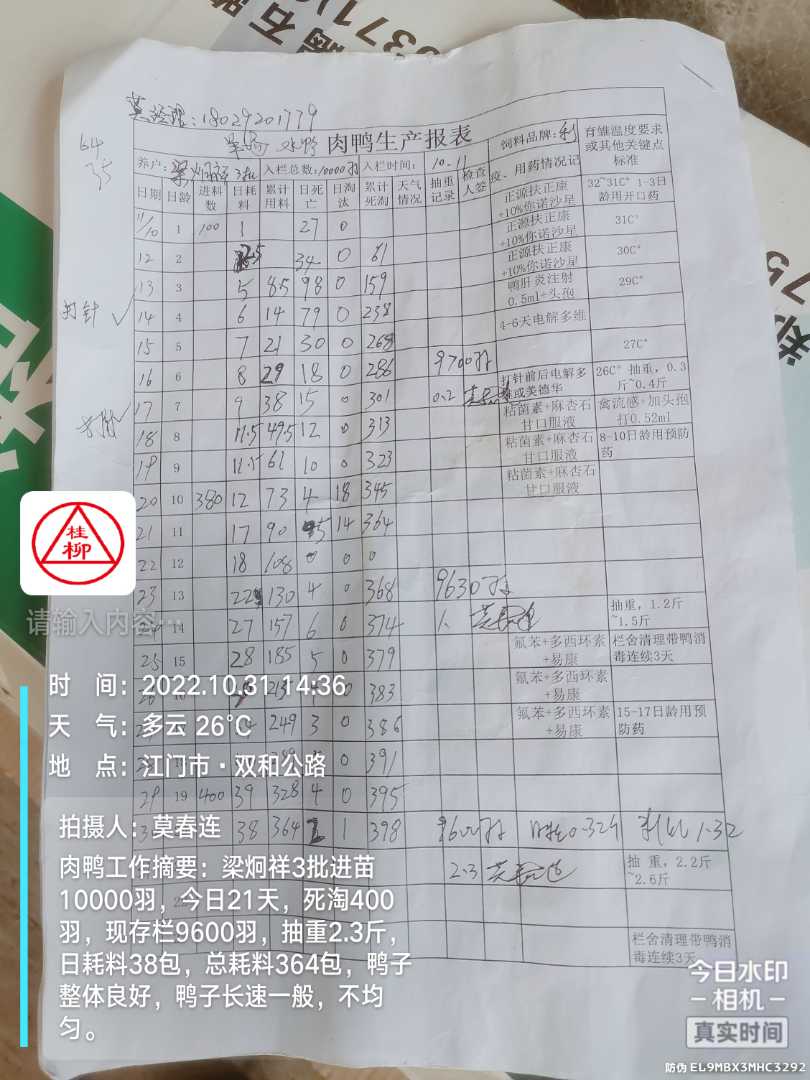 莫经理:18029201779
64
35
肉鸭生产报表
饲料品牌:利
育雏温度要求或其他关键点标准
养户:梁炯祥 3批 入栏总数:10000羽 入栏时间: 10.11
疫、用药情况记
日期 日龄 进料数 日耗料 累计用料 日死亡 日淘汰 累计死淘 天气情况 抽重记录 检查人签
11/10 1 100 1 27 0 正源扶正康+10%你诺沙星 32~31C° 1-3日龄用开口药
12 2 34 0 61 正源扶正康+10%你诺沙星 31C°
13 3 5 8.5 98 0 159 正源扶正康+10%你诺沙星 30C°
打针 ✓
14 4 6 14 79 0 238 鸭肝炎注射0.5ml+头孢 29C°
15 5 7 21 30 0 268 4-6天电解多维
16 6 8 29 18 0 286 9700羽 27C°
17 7 9 38 15 0 301 0.2 打针前后电解多维或美德华 26C° 抽重,0.3斤~0.4斤
18 8 11.5 49.5 12 0 313 粘菌素+麻杏石甘口服液 禽流感+加头孢打0.52ml
19 9 11.5 61 10 0 323 粘菌素+麻杏石甘口服液 8-10日龄用预防药
20 10 380 12 73 4 18 345 粘菌素+麻杏石甘口服液
21 11 17 90 5 14 364
22 12 18 108 0 0 0
23 13 22 130 4 0 368 9630羽
14 27 157 6 0 374 1. 莫春连 抽重,1.2斤~1.5斤
25 15 28 185 5 0 379 氟苯+多西环素+易康 栏舍清理带鸭消毒连续3天
383 氟苯+多西环素+易康
249 3 0 386 氟苯+多西环素+易康 15-17日龄用预防药
391
29 19 400 39 328 4 0 395
38 364 2 1 398 9600羽 日耗0.324 料比1.32
2.3 莫春连 抽 重,2.2斤~2.6斤
栏舍清理带鸭消毒连续3天
桂柳
请输入内容…
时 间:2022.10.31 14:36
天 气:多云 26℃
地 点:江门市·双和公路
拍摄人:莫春连
肉鸭工作摘要:梁炯祥3批进苗
10000羽,今日21天,死淘400
羽,现存栏9600羽,抽重2.3斤,
日耗料38包,总耗料364包,鸭子
整体良好,鸭子长速一般,不均
匀。
今日水印
相机
真实时间
防伪 EL9MBX3MHC3292